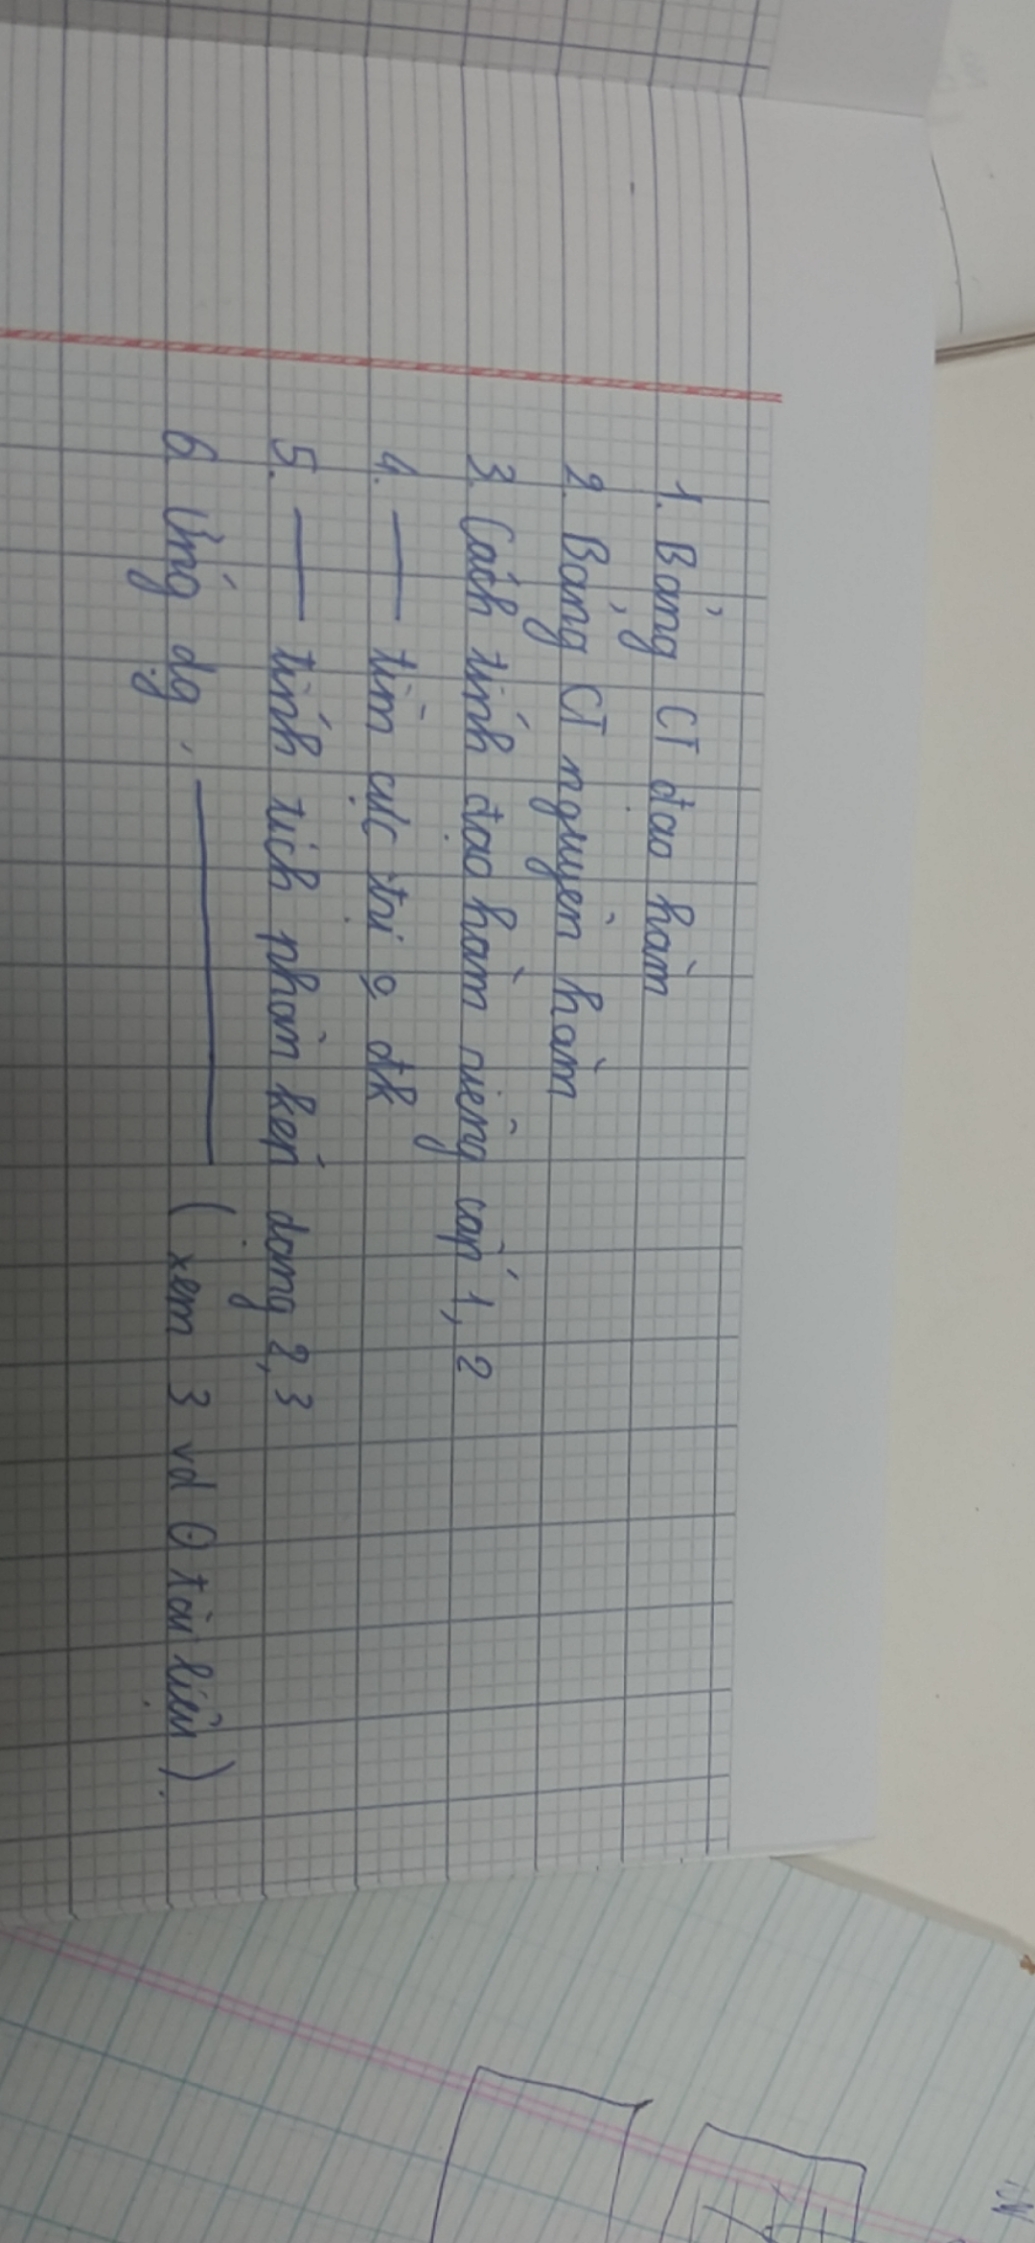 1. Bảng CT đạo hàm
2. Bảng CT nguyên hàm
3. Cách tính đạo hàm riêng cấp 1, 2
4. — tìm cực trị 0 đk
5. — tính tích phân kép dạng 2, 3
6. Ứng dg. — ( xem 3 vd 0 tài liệu )